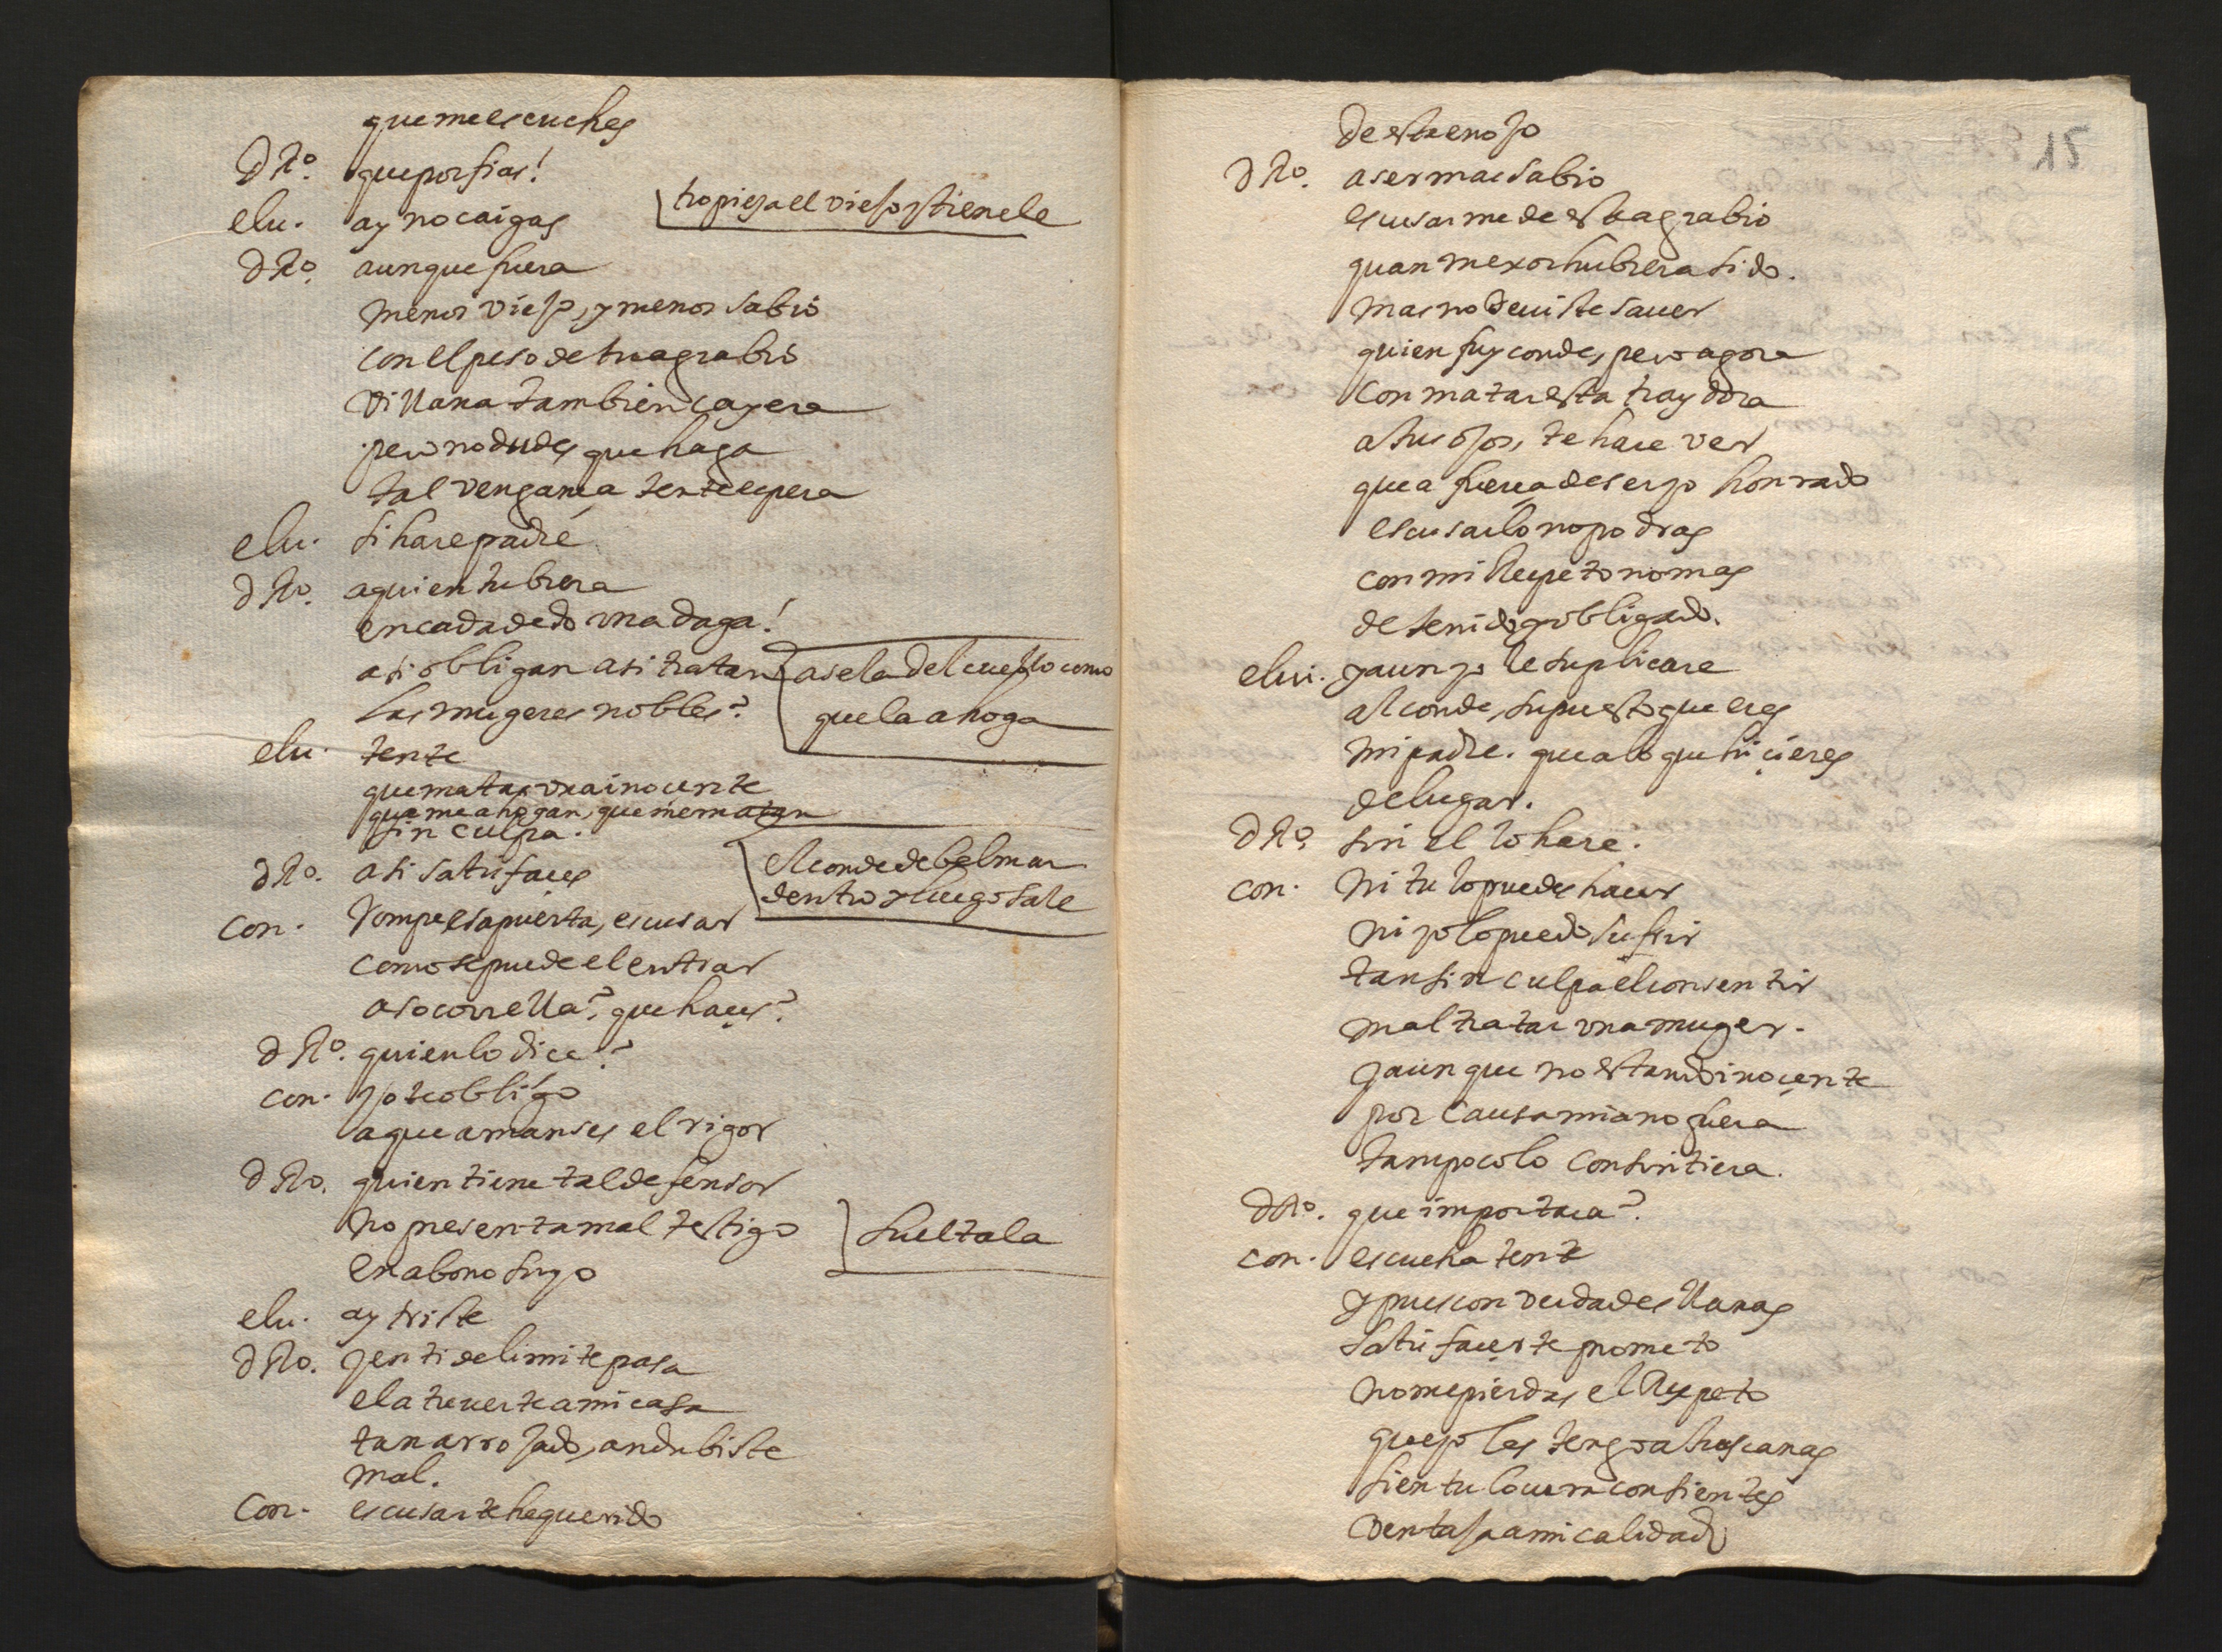 que me escuches
d Ro. que porfias!
elu. ay no caigas
tropieza el viejo y tienele
d Ro. aunque fuera
menos viejo, y menos sabio
con el peso de tu agrabio
villana tambien cayera
pero no dudes que haga
tal vengança tente espera
elu. si hare padre
d Ro. a quien tubiera
en cada dedo vna daga!
asi obligan asi tratan
las mugeres nobles?
asela del cuello como
que la ahoga
elu. tente
que matas vna inocente
que me ahogan, que me matan
sin culpa.
d Ro. asi satisfaçes
el conde de belmar
dentro y luego sale
con. Rompe esa puerta, escusar
como se puede el entrar
a socorrella? que haçes?
d Ro. quien lo dice?
con. yo te obligo
a que amanses el rigor
d Ro. quien tiene tal defensor
no presenta mal testigo
en abono suyo
sueltala
elu. ay triste
d Ro. y en ti de limite pasa
el atreuerte a mi casa
tan arrojado, andubiste
mal.
con. escusarte he querido
15
de este enojo
d Ro. a ser mas sabio
escusarme de este agrabio
quan mexor hubiera sido.
mas no deuiste sauer
quien fuy conde, pero agora
con matar esta traydora
a tus ojos, te hare ver
que a fuerça de ser yo honrado
escusarlo no podras
con mi Respeto no mas
detenido y obligado.
elui. y aun yo le suplicare
al conde, supuesto que eres
mi padre. que a lo que hiçieres
de lugar.
d Ro. sin el lo hare.
con. ni tu lo puedes hacer
ni yo lo puedo sufrir
tan sin culpa el consentir
maltratar vna muger.
y aunque no estando inoçente
por causa mia no fuera
tampoco lo consintiera.
d Ro. que importara?
con. escucha tente
y pues con verdades llanas
satisfaçerte prometo
no me pierdas el Respeto
que yo les tengo a tus canas
si en tu locura consientes
ventaja a mi calidad